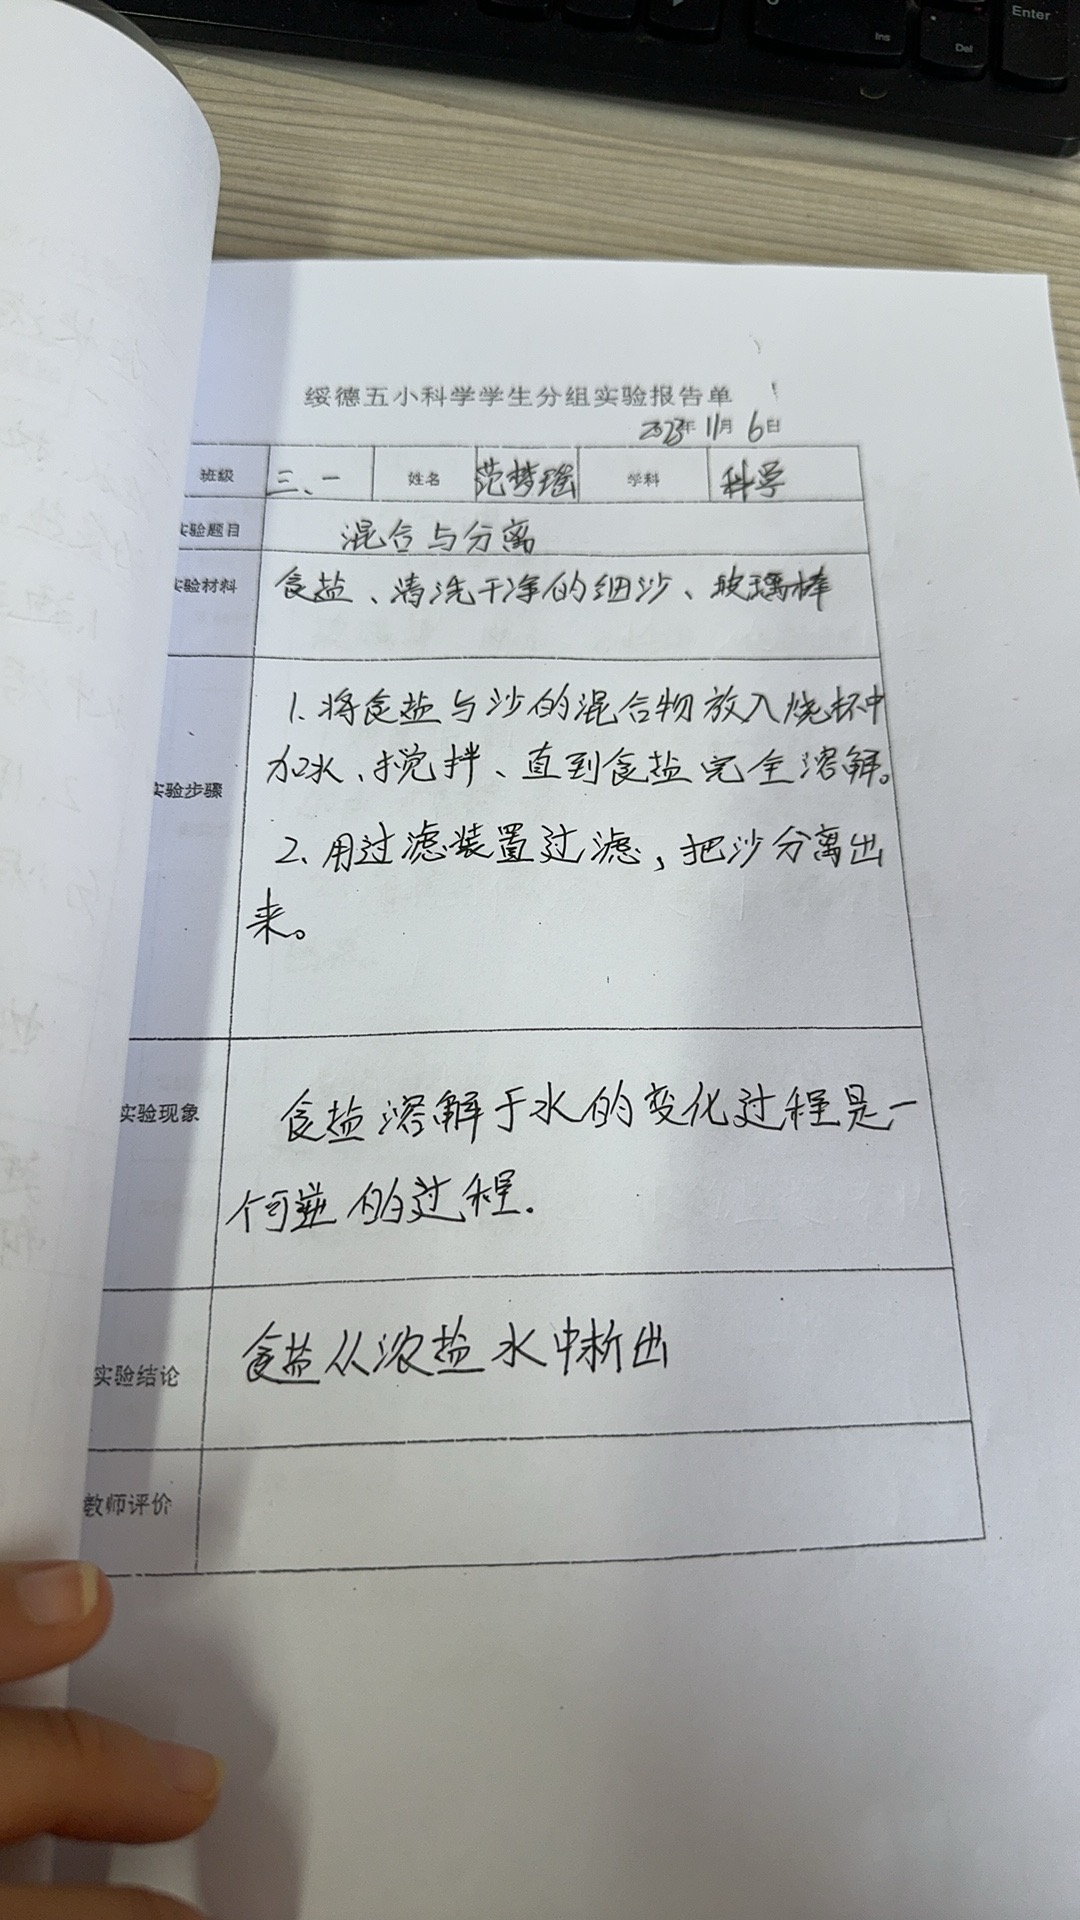 Enter
Ins
Del
绥德五小科学学生分组实验报告单
2023年 11月 6日
班级 三、一 姓名 范梦瑶 学科 科学
实验题目 混合与分离
实验材料 食盐、清洗干净的细沙、玻璃棒
1.将食盐与沙的混合物放入烧杯中
加水、搅拌、直到食盐完全溶解。
实验步骤
2、用过滤装置过滤,把沙分离出
来。
实验现象 食盐溶解于水的变化过程是一
个可逆的过程.
实验结论 食盐从浓盐水中析出
教师评价